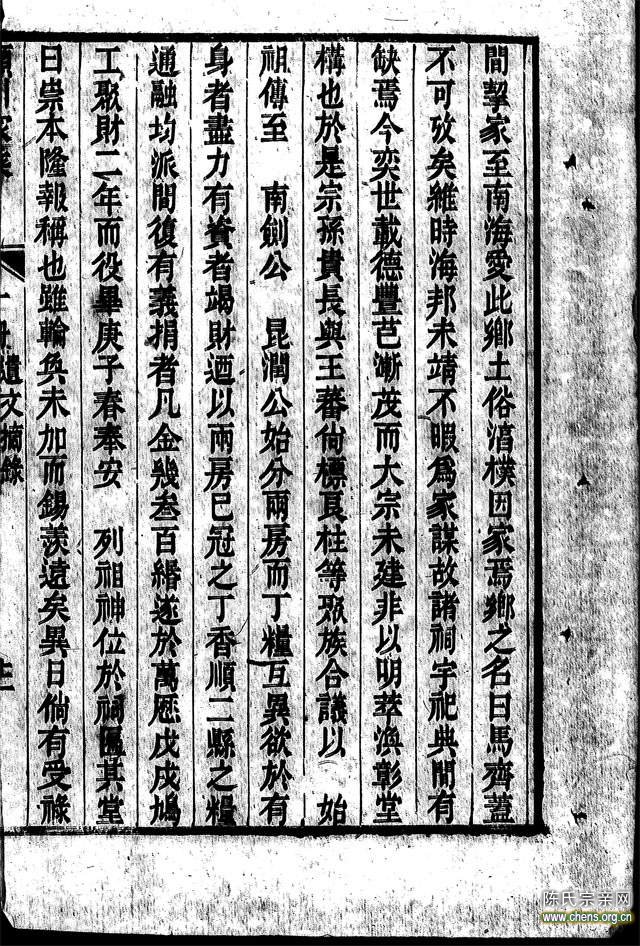 間挈家至南海愛此鄉土俗湻樸因家焉鄉之名曰馬齊蓋
不可攷矣維時海邦未靖不暇爲家謀故諸祠宇祀典間有
缺焉今奕世載德豐芑漸茂而大宗未建非以明萃渙彰堂
構也於是宗孫貴長與王蕃尙標良柱等聚族合議以 始
祖傳至 南劍公 昆潤公始分兩房而丁糧互異欲於有
身者盡力有貲者竭財迺以兩房巳冠之丁香順二縣之糧
通融均派間復有義捐者凡金幾叁百緡遂於萬厯戊戌鳩
工聚財二年而役畢庚子春奉安 列祖神位於祠匾其堂
曰崇本隆報稱也雖輪奐未加而錫羨遺矣異日倘有受祿
遺文摘錄
陈氏宗亲网
www.chens.org.cn